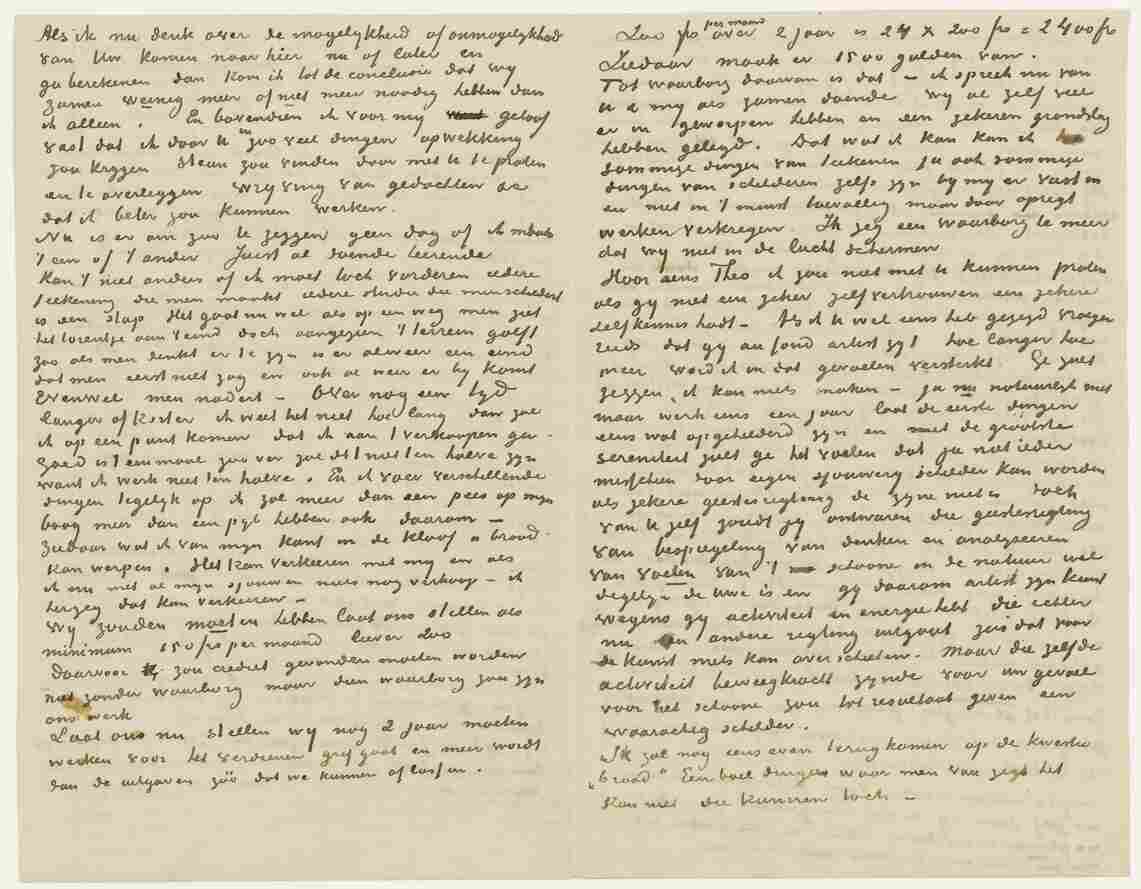 Als ik nu denk over de mogelijkheid of onmogelijkheid
van Uw komen naar hier nu of later en
ga berekenen dan kom ik tot de conclusie dat wij
zamen weinig meer of niet meer noodig hebben dan
ik alleen. En bovendien ik voor mij geloof
vast dat ik door U in zoo veel dingen opwekking
zou krijgen steun zou vinden door met U te praten
en te overleggen wrijving van gedachten &c
dat ik beter zou kunnen werken.
Nu is er om zoo te zeggen geen dag of ik maak
't een of 't ander Juist al doende leerende
kan 't niet anders of ik moet toch vorderen iedere
teekening die men maakt iedere studie die men schildert
is een stap Het gaat nu wel als op een weg men ziet
het torentje aan 't eind doch aangezien 't terrein golft
zoo als men denkt er te zijn is er alweer een eind
dat men eerst niet zag en ook al weer er bij komt
Evenwel men nadert – Over nog een tijd
langer of korter ik weet het niet hoe lang dan zal
ik op een punt komen dat ik aan 't verkoopen ga.
Goed is 't eenmaal zoo ver zal dit niet ten halve zijn
want ik werk niet ten halve. En ik voer verschillende
dingen tegelijk op ik zal meer dan een pees op mijn
boog meer dan een pijl hebben ook daarom –
Ziedaar wat ik van mijn kant in de kloof „brood"
kan werpen. Het kan verkeeren met mij en als
ik nu met al mijn sjouwen niets nog verkoop – ik
herzeg dat kan verkeeren –
Wij zouden moeten hebben laat ons stellen als
minimum 150 fr. per maand liever 200
Daarvoor zou crediet gevonden moeten worden
niet zonder waarborg maar dien waarborg zou zijn
ons werk
Laat ons nu stellen wij nog 2 jaar moeten
werken voor het verdienen grif gaat en meer wordt
dan de uitgaven zóó dat we kunnen aflossen.
200 fr per maand over 2 jaar is 24 x 200 fr = 2400 fr
Ziedaar maak er 1500 gulden van.
Tot waarborg daarvan is dat – ik spreek nu van
U & mij als zamen doende wij al zelf veel
er in geworpen hebben en een zekeren grondslag
hebben gelegd. Dat wat ik kan kan ik
sommige dingen van teekenen ja ook sommige
dingen van schilderen zelfs zijn bij mij er vast in
en niet in 't minst toevallig maar door opregt
werken verkregen. Ik zeg een waarborg te meer
dat wij niet in de lucht schermen
Hoor eens Theo ik zou niet met U kunnen praten
als gij niet een zeker zelfvertrouwen een zekere
zelfkennis hadt – Als ik U wel eens heb gezegd vroeger
reeds dat gij au fond artist zijt hoe langer hoe
meer word ik in dat gevoelen versterkt. Ge zult
zeggen, ik kan niets maken – ja nu natuurlijk niet
maar werk eens een jaar laat de eerste dingen
eens wat opgehelderd zijn en met de grootste
sereniteit zult ge het voelen dat ja niet ieder
misschien door eigen sjouwerij schilder kan worden
als zekere geestesrigting de zijne niet is doch
van U zelf zoudt gij ontwaren die geestesrigting
van bespiegeling van denken en analyseeren
van voelen van 't schoone in de natuur wel
degelijk de uwe is en gij daarom artist zijn kunt
wegens gij activiteit en energie hebt die echter
nu een andere rigting uitgaat zoodat voor
de kunst niets kan overschieten. Maar die zelfde
activiteit beweegkracht zijnde voor uw gevoel
voor het schoone zou tot resultaat geven een
waarachtig schilder.
Ik zal nog eens even terugkomen op de kwestie
„brood". Een boel dingen waar men van zegt het
kan niet die kunnen toch –